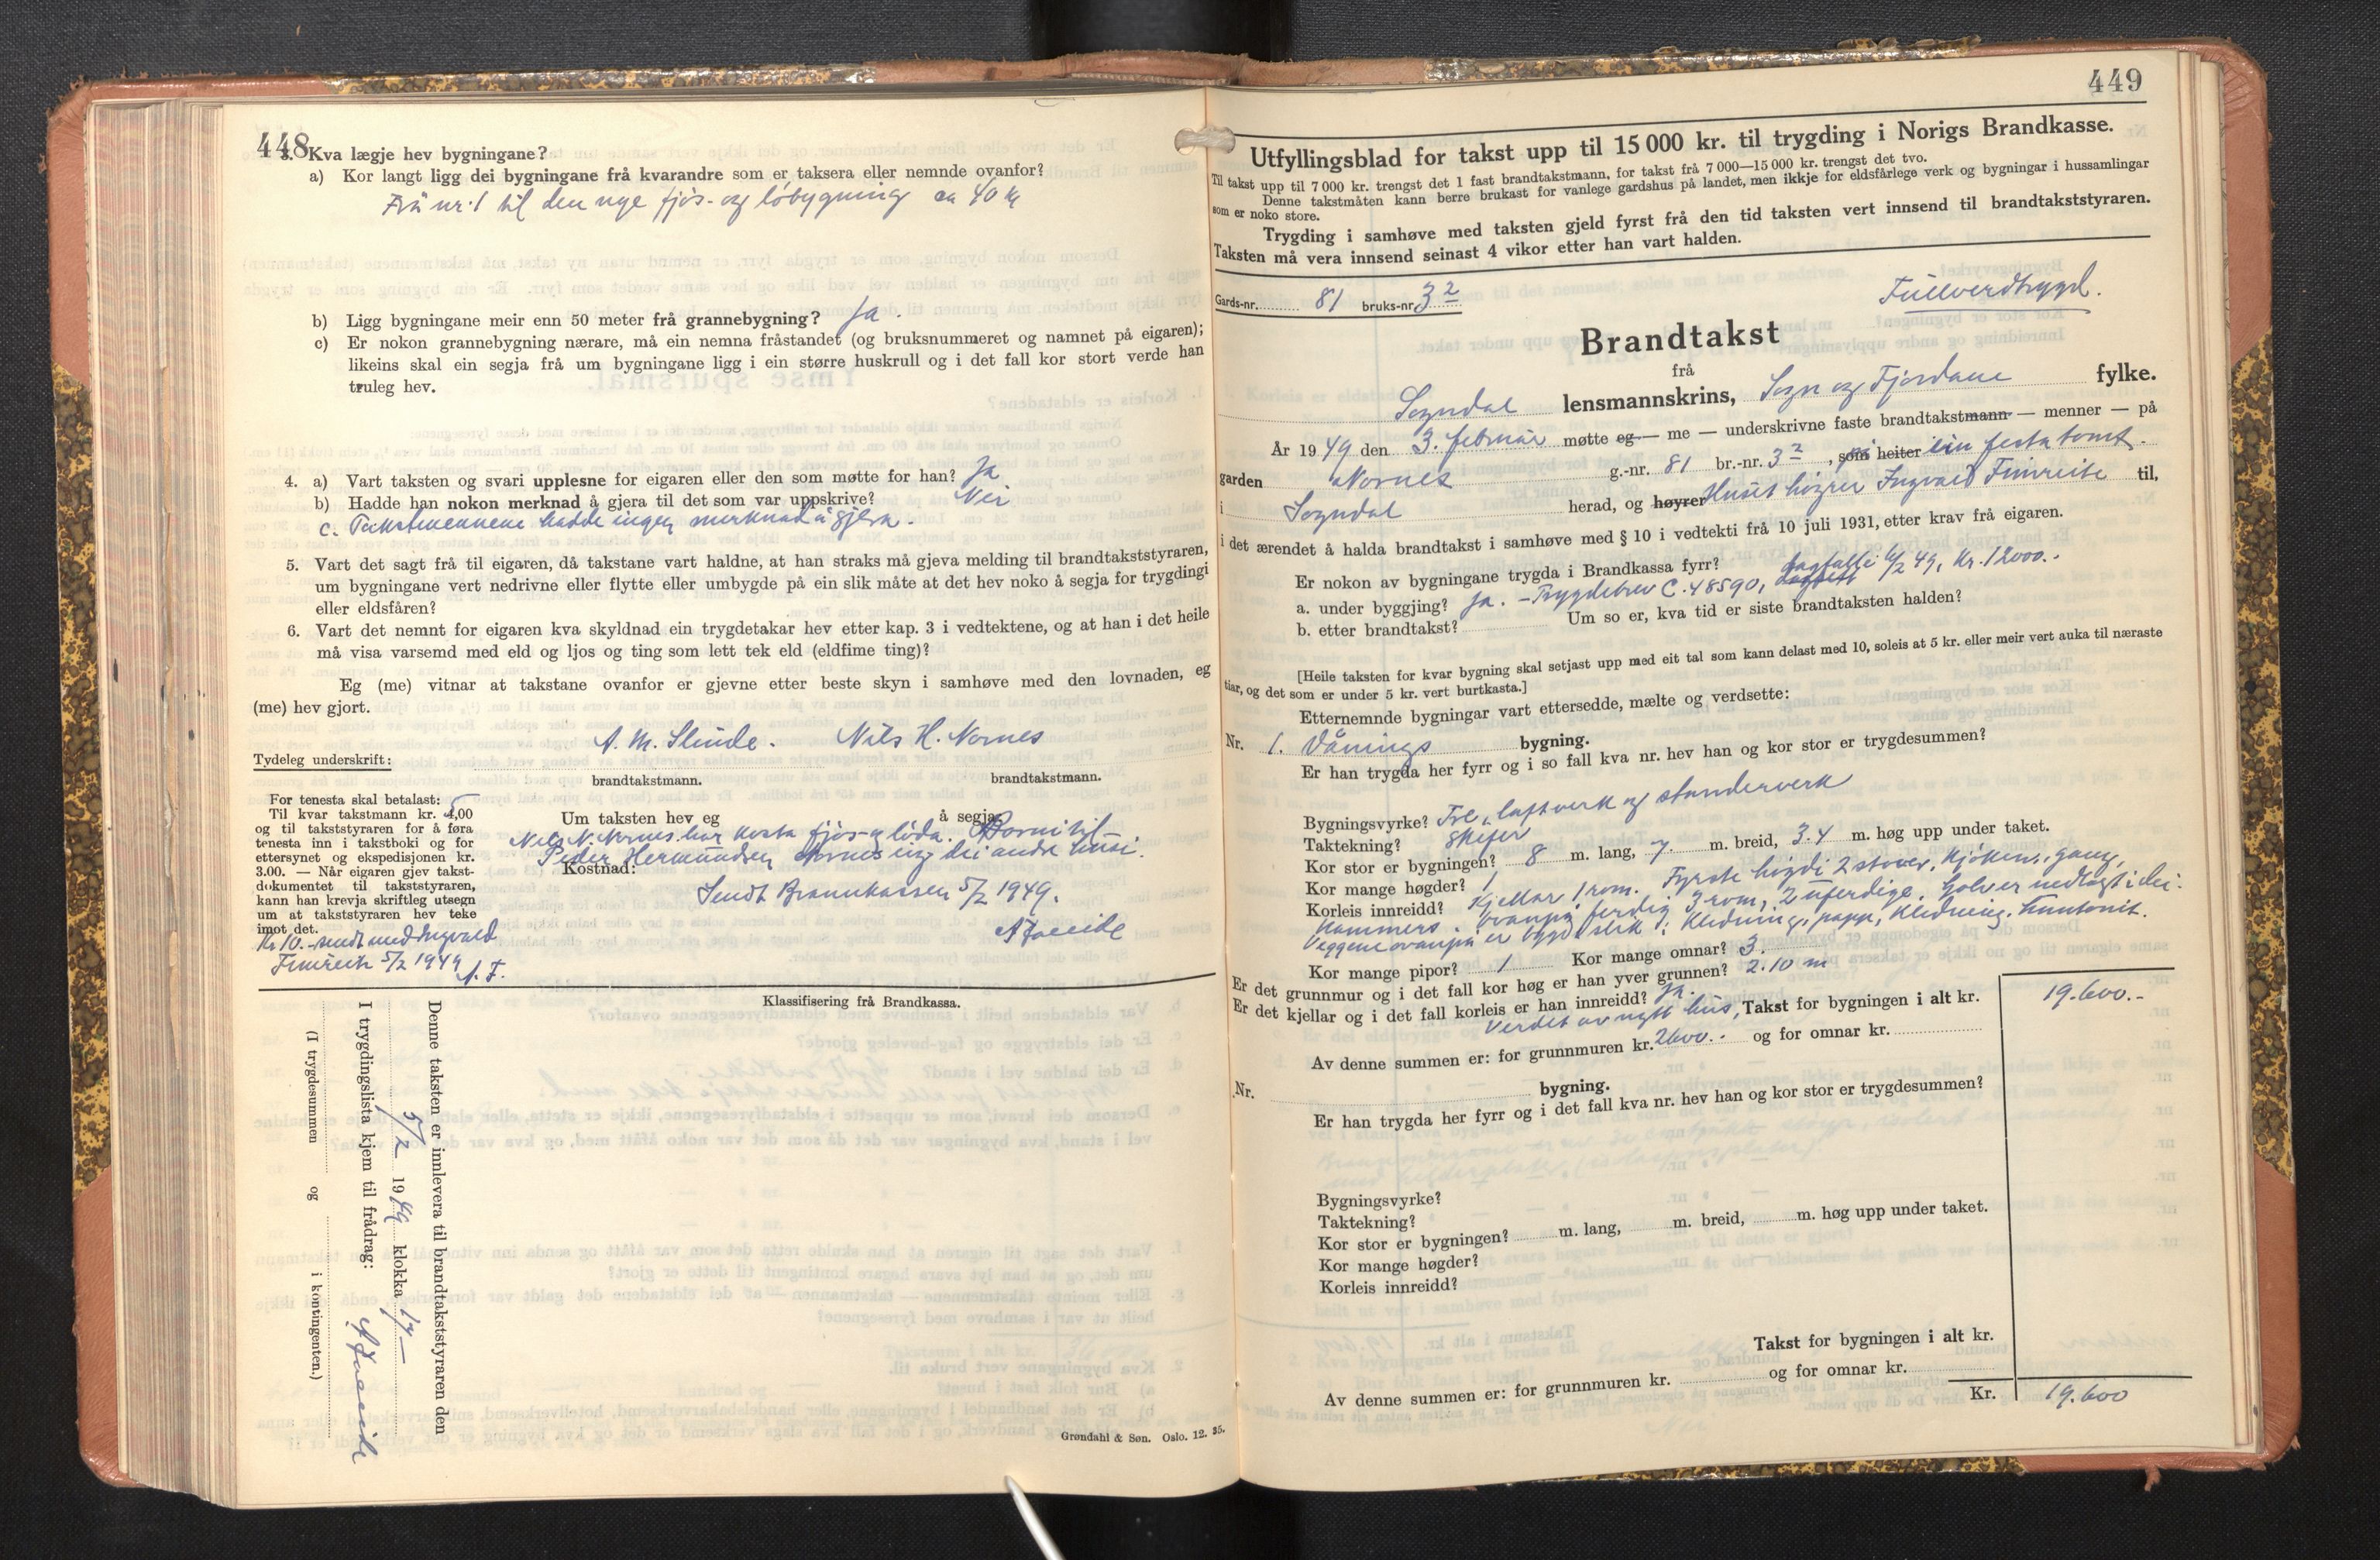 448
3. Kva lægje hev bygningane?
a) Kor langt ligg dei bygningane frå kvarandre som er taksera eller nemnde ovanfor?
Frå nr. 1 til den nye fjøs- og løbygning ca 40 m
b) Ligg bygningane meir enn 50 meter frå grannebygning? Ja.
c) Er nokon grannebygning nærare, må ein nemna fråstandet (og bruksnummeret og namnet på eigaren);
likeins skal ein segja frå um bygningane ligg i ein større huskrull og i det fall kor stort verde han
truleg hev.
4. a) Vart taksten og svari upplesne for eigaren eller den som møtte for han? Ja
b) Hadde han nokon merknad å gjera til det som var uppskrive? Nei
c. Takstmennene hadde ingen merknad å gjera.
5. Vart det sagt frå til eigaren, då takstane vart haldne, at han straks må gjeva melding til brandtakststyraren,
um bygningane vert nedrivne eller flytte eller umbygde på ein slik måte at det hev noko å segja for trygdingi
eller eldsfåren?
6. Vart det nemnt for eigaren kva skyldnad ein trygdetakar hev etter kap. 3 i vedtektene, og at han i det heile
må visa varsemd med eld og ljos og ting som lett tek eld (eldfime ting)?
Eg (me) vitnar at takstane ovanfor er gjevne etter beste skyn i samhøve med den lovnaden, eg
(me) hev gjort.
A. M. Slinde. Nils H. Nornes
Tydeleg underskrift:
brandtakstmann. brandtakstmann.
For tenesta skal betalast:
Til kvar takstmann kr. 4,00 5
og til takststyraren for å føra
tenesta inn i takstboki og for
ettersynet og ekspedisjonen kr.
3.00. — Når eigaren gjev takst-
dokumentet til takststyraren,
kann han krevja skriftleg utsegn
um at takststyraren hev teke
imot det.
Kr 10.- sendt med Ingvald
Fimreite 5/2 1949 A. F.
Um taksten hev eg å segja:
Nils N. Nornes har kosta fjøs- og løda. Borni til
Peder Hermundsen Nornes eig dei andre husi.
Kostnad:
Sendt Brannkassen 5/2 1949.
Klassifisering frå Brandkassa.
Denne taksten er innlevera til brandtakststyraren den
5/2 1949 klokka 17—
I trygdingslista kjem til frådrag:
(I trygdesummen og i kontingenten.)
Grøndahl & Søn. Oslo. 12. 35.
449
Utfyllingsblad for takst upp til 15 000 kr. til trygding i Norigs Brandkasse.
Til takst upp til 7 000 kr. trengst det 1 fast brandtakstmann, for takst frå 7 000—15 000 kr. trengst det tvo.
Denne takstmåten kann berre brukast for vanlege gardshus på landet, men ikkje for eldsfårlege verk og bygningar i hussamlingar
som er noko store.
Trygding i samhøve med taksten gjeld fyrst frå den tid taksten vert innsend til brandtakststyraren.
Taksten må vera innsend seinast 4 vikor etter han vart halden.
Gards-nr. 81 bruks-nr. 3 2
Fullverdtrygd.
Brandtakst
frå
Sogndal lensmannskrins, Sogn og Fjordane fylke.
År 1949 den 3. februar møtte eg — me — underskrivne faste brandtakstmann — menner — på
garden Nornes g.-nr. 81 br.-nr. 3 2, som heiter på ein festa tomt.
i Sogndal herad, og høyrer Huset høyrer Ingvald Fimreite til,
i det ærendet å halda brandtakst i samhøve med § 10 i vedtekti frå 10 juli 1931, etter krav frå eigaren.
Er nokon av bygningane trygda i Brandkassa fyrr?
a. under byggjing? Ja. - Trygdebrev C. 48590, bagfalle 4/2 49, Kr. 12000.-
b. etter brandtakst? Um so er, kva tid er siste brandtaksten halden?
[Heile taksten for kvar bygning skal setjast upp med eit tal som kann delast med 10, soleis at 5 kr. eller meir vert auka til næraste
tiar, og det som er under 5 kr. vert burtkasta.]
Etternemnde bygningar vart ettersedde, mælte og verdsette:
Nr. 1. Vånings bygning.
Er han trygda her fyrr og i so fall kva nr. hev han og kor stor er trygdesummen?
Bygningsvyrke? Tre, laftverk og standerverk
Taktekning? Skifer
Kor stor er bygningen? 8 m. lang, 7 m. breid, 3.4 m. høg upp under taket.
Kor mange høgder? 1
Korleis innreidd? Kjellar 1 rom. Fyrste høgdi 2 stover, kjøken, gang,
kammers. Ovanpå ferdig 3 rom, 2 uferdige. Golv er nedlagt i dei.
Veggene ovanpå er bygd slik: Kledning, papp, kledning, huntonit.
Kor mange pipor? 1 Kor mange omnar? 3.
Er det grunnmur og i det fall kor høg er han yver grunnen? 2.10 m
Er det kjellar og i det fall korleis er han innreidd? Ja.
Verdet av nytt hus, Takst for bygningen i alt kr. 19.600.-
Av denne summen er: for grunnmuren kr. 2600.- og for omnar kr.
Nr. bygning.
Er han trygda her fyrr og i det fall kva nr. hev han og kor stor er trygdesummen?
Bygningsvyrke?
Taktekning?
Kor stor er bygningen? m. lang, m. breid, m. høg upp under taket.
Kor mange høgder?
Korleis innreidd?
Takst for bygningen i alt kr.
Av denne summen er: for grunnmuren kr. og for omnar kr.
Kr. 19.600